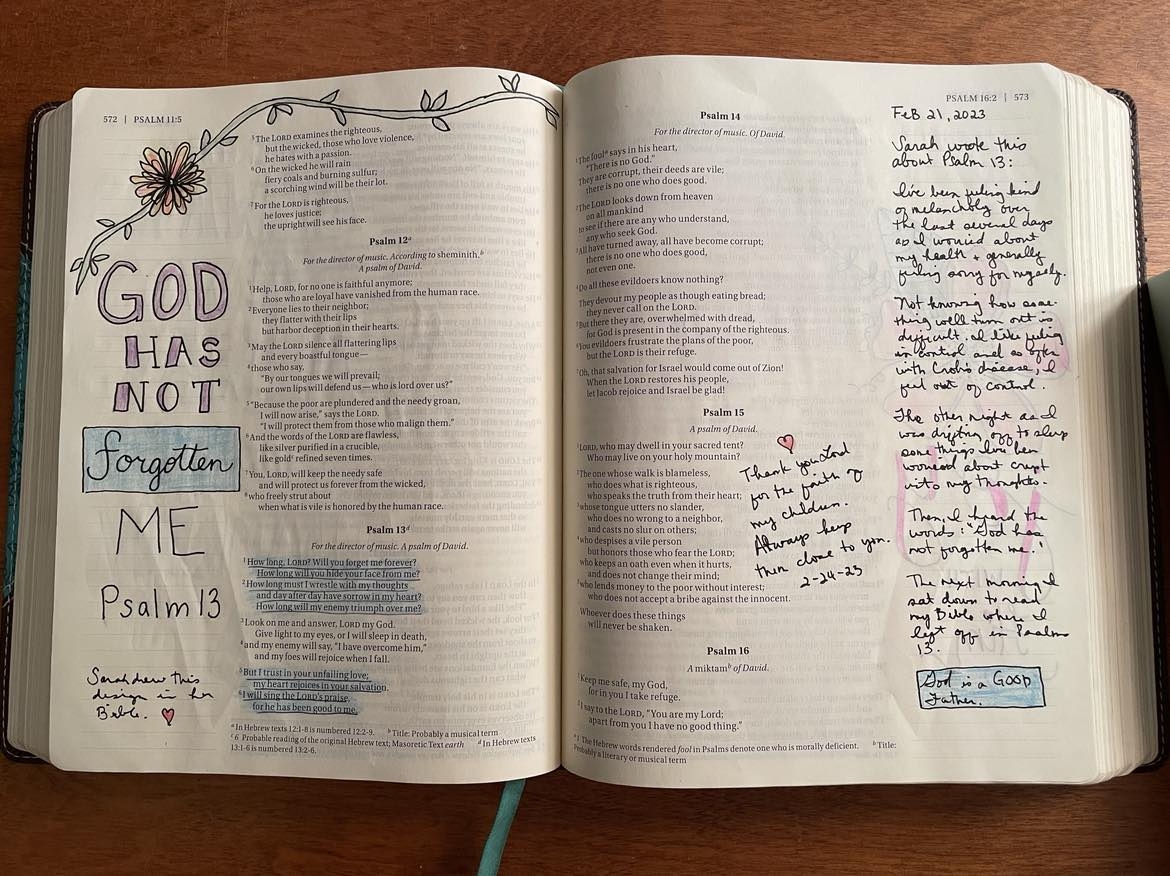 572 | PSALM 11:5
GOD
HAS
NOT
forgotten
ME
Psalm 13
Sarah drew this
design in her
Bible.
5 The LORD examines the righteous,
but the wicked, those who love violence,
he hates with a passion.
6 On the wicked he will rain
fiery coals and burning sulfur;
a scorching wind will be their lot.
7 For the LORD is righteous,
he loves justice;
the upright will see his face.
Psalm 12a
For the director of music. According to sheminith.b
A psalm of David.
1 Help, LORD, for no one is faithful anymore;
those who are loyal have vanished from the human race.
2 Everyone lies to their neighbor;
they flatter with their lips
but harbor deception in their hearts.
3 May the LORD silence all flattering lips
and every boastful tongue—
4 those who say,
“By our tongues we will prevail;
our own lips will defend us — who is lord over us?”
5 “Because the poor are plundered and the needy groan,
I will now arise,” says the LORD.
“I will protect them from those who malign them.”
6 And the words of the LORD are flawless,
like silver purified in a crucible,
like goldc refined seven times.
7 You, LORD, will keep the needy safe
and will protect us forever from the wicked,
8 who freely strut about
when what is vile is honored by the human race.
Psalm 13d
For the director of music. A psalm of David.
1 How long, LORD? Will you forget me forever?
How long will you hide your face from me?
2 How long must I wrestle with my thoughts
and day after day have sorrow in my heart?
How long will my enemy triumph over me?
3 Look on me and answer, LORD my God.
Give light to my eyes, or I will sleep in death,
4 and my enemy will say, “I have overcome him,”
and my foes will rejoice when I fall.
5 But I trust in your unfailing love;
my heart rejoices in your salvation.
6 I will sing the LORD’s praise,
for he has been good to me.
a In Hebrew texts 12:1-8 is numbered 12:2-9. b Title: Probably a musical term
c 6 Probable reading of the original Hebrew text; Masoretic Text earth d In Hebrew texts
13:1-6 is numbered 13:2-6.
PSALM 16:2 | 573
Psalm 14
For the director of music. Of David.
1 The foola says in his heart,
“There is no God.”
They are corrupt, their deeds are vile;
there is no one who does good.
2 The LORD looks down from heaven
on all mankind
to see if there are any who understand,
any who seek God.
3 All have turned away, all have become corrupt;
there is no one who does good,
not even one.
4 Do all these evildoers know nothing?
They devour my people as though eating bread;
they never call on the LORD.
5 But there they are, overwhelmed with dread,
for God is present in the company of the righteous.
6 You evildoers frustrate the plans of the poor,
but the LORD is their refuge.
7 Oh, that salvation for Israel would come out of Zion!
When the LORD restores his people,
let Jacob rejoice and Israel be glad!
Psalm 15
A psalm of David.
1 LORD, who may dwell in your sacred tent?
Who may live on your holy mountain?
2 The one whose walk is blameless,
who does what is righteous,
who speaks the truth from their heart;
3 whose tongue utters no slander,
who does no wrong to a neighbor,
and casts no slur on others;
4 who despises a vile person
but honors those who fear the LORD;
who keeps an oath even when it hurts,
and does not change their mind;
5 who lends money to the poor without interest;
who does not accept a bribe against the innocent.
Whoever does these things
will never be shaken.
Psalm 16
A miktamb of David.
1 Keep me safe, my God,
for in you I take refuge.
2 I say to the LORD, “You are my Lord;
apart from you I have no good thing.”
a 1 The Hebrew words rendered fool in Psalms denote one who is morally deficient. b Title:
Probably a literary or musical term
Thank you Lord
for the faith of
my children.
Always keep
them close to you.
2-24-23
FEB 21, 2023
Sarah wrote this
about Psalm 13:
I've been feeling kind
of melancholy over
the last several days
as I worried about
my health + generally
feeling sorry for myself.
Not knowing how some-
thing will turn out is
difficult. I like feeling
in control and so often
with Crohn's disease, I
feel out of control.
The other night as I
was drifting off to sleep
some things I've been
worried about crept
into my thoughts.
Then, I heard the
words: "God has
not forgotten me."
The next morning I
sat down to read
my Bible where I
left off in Psalms
13.
God is a GOOD
Father.